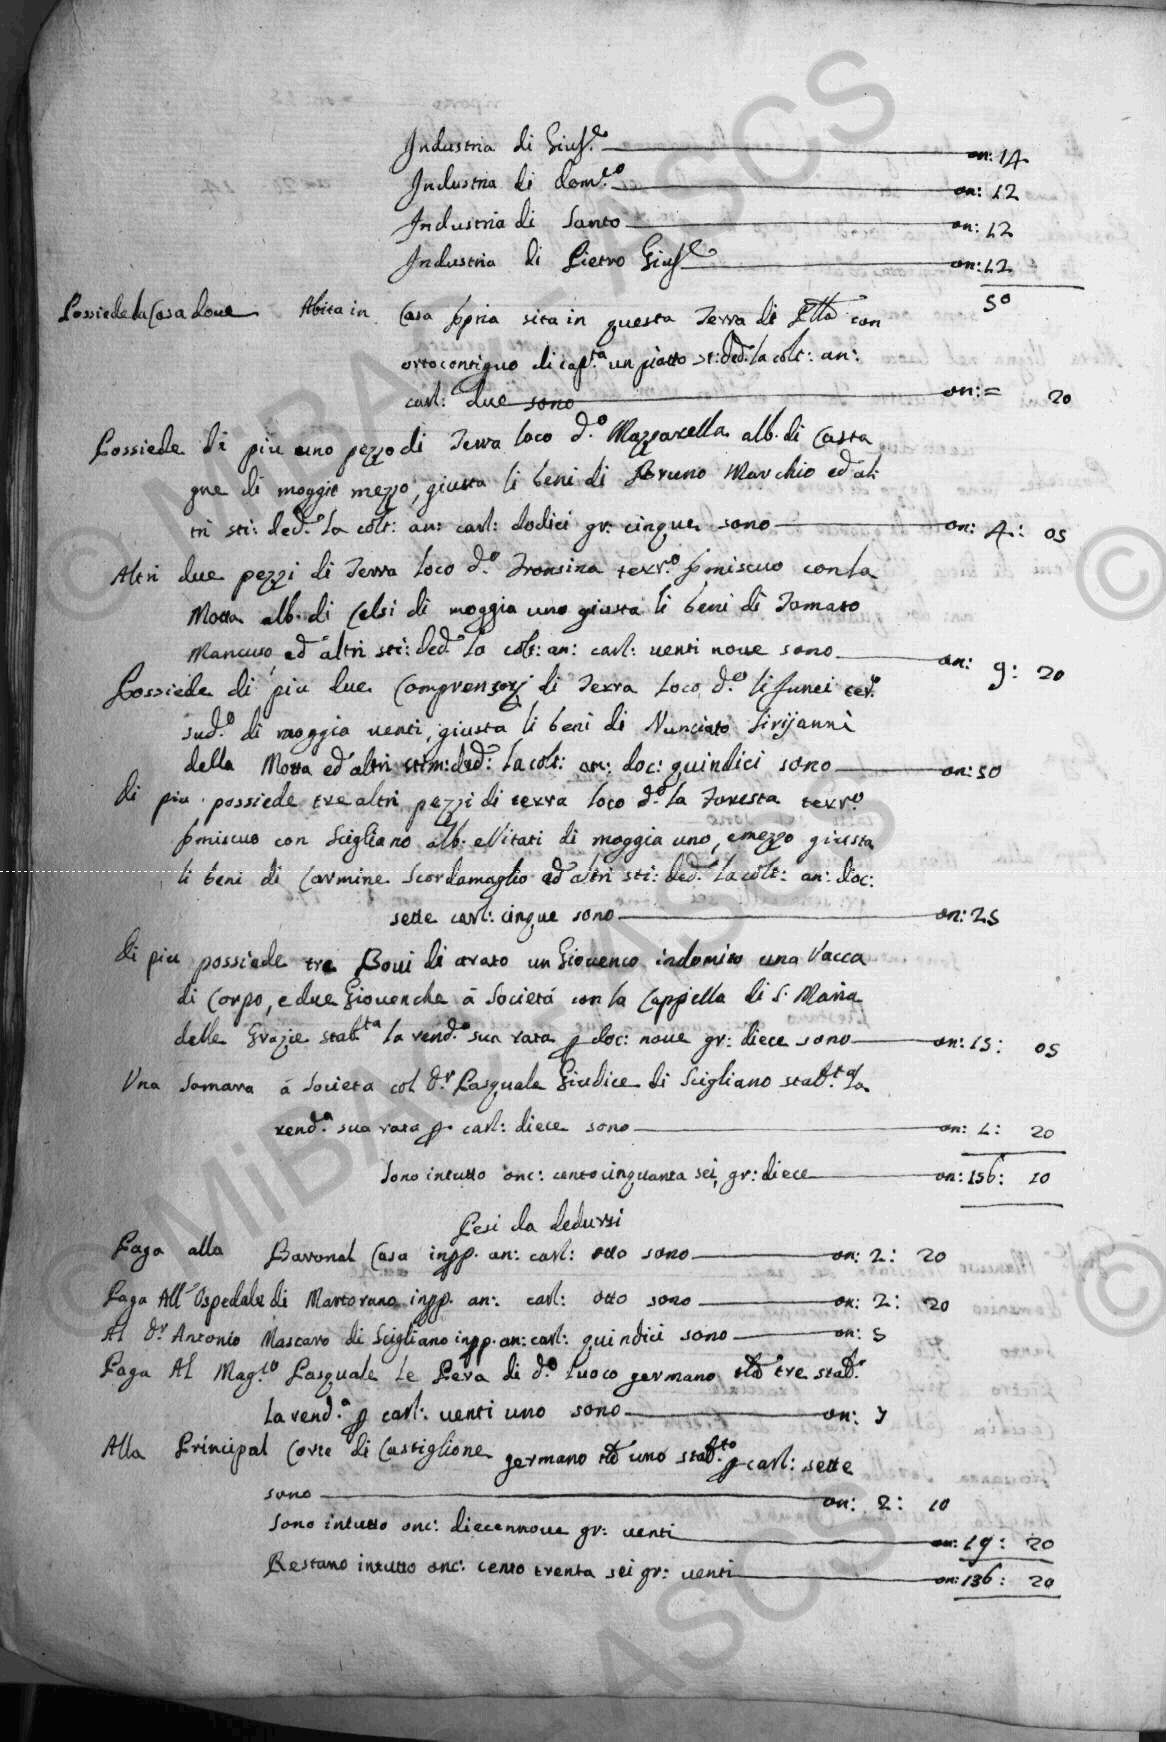 Industria di Giuse on: 14
Industria di Domco on: 12
Industria di Santo on: 12
Industria di Pietro Giuse on: 12
50
Possiede la Casa doue Abita in Casa ppria sita in questa Terra di Mtta con
orto contiguo di capta un piatto st: ded: la colt: an:
carl: due sono on: = 20
Possiede di piu uno pezzo di Terra loco do Mazzarella alb. di Casta
gne di moggie mezzo, giusta li beni di Bruno Marchio ed al
tri sti: ded: la colt: an: carl: dodici gr: cinque sono on: 4: 05
Altri due pezzi di Terra loco do Tronsina terro pmiscuo con la
Motta alb. di Celsi di moggia uno giusta li beni di Tomaso
Mancuso, ed altri sti: ded: la colt: an: carl: uenti noue sono on: 9: 20
Possiede di piu due Comprensorj di Terra loco do li Junci terro
sudo di moggia uenti, giusta li beni di Nunciato Sirijanni
della Motta ed altri stim: ded: la colt: an: doc: quindici sono on: 50
Di piu possiede tre altri pezzi di terra loco do la Foresta terro
pmiscuo con Scigliano alb: e Vitati di moggia uno, e mezzo giusta
li beni di Carmine Scordamaglio ed altri sti: ded: la colt: an: doc:
sette carl: cinque sono on: 25
Di piu possiede tre Boui di arato un Giouenco indomito una Vacca
di Corpo, e due Giouenche á Societá con la Cappella di S. Maria
delle Grazie stabta la renda sua rata p doc: noue gr: diece sono on: 15: 05
Una Somara á Societa col Dr Pasquale Giudice di Scigliano stabta la
renda sua rata p carl: diece sono on: 1: 20
Sono intutto onc: cento cinquanta sei, gr: diece on: 156: 10
Pesi da dedursi
Paga alla Baronal Casa inpp. an: carl: otto sono on: 2: 20
Paga All'Ospedale di Martorano inpp. an: carl: otto sono on: 2: 20
Al Dr Antonio Mascaro di Scigliano inpp. an: carl: quindici sono on: 5
Paga Al Magco Pasquale Le Pera di do luoco germano tto tre stab:
la renda p carl: uenti uno sono on: 7
Alla Principal Corte di Castiglione germano tto uno stabto p carl: sette
sono on: 2: 10
Sono intutto onc: diecennoue gr: uenti on: 19: 20
Restano intutto onc: cento trenta sei gr: uenti on: 136: 20
© MiBAC - ASCS
© MiBAC - ASCS